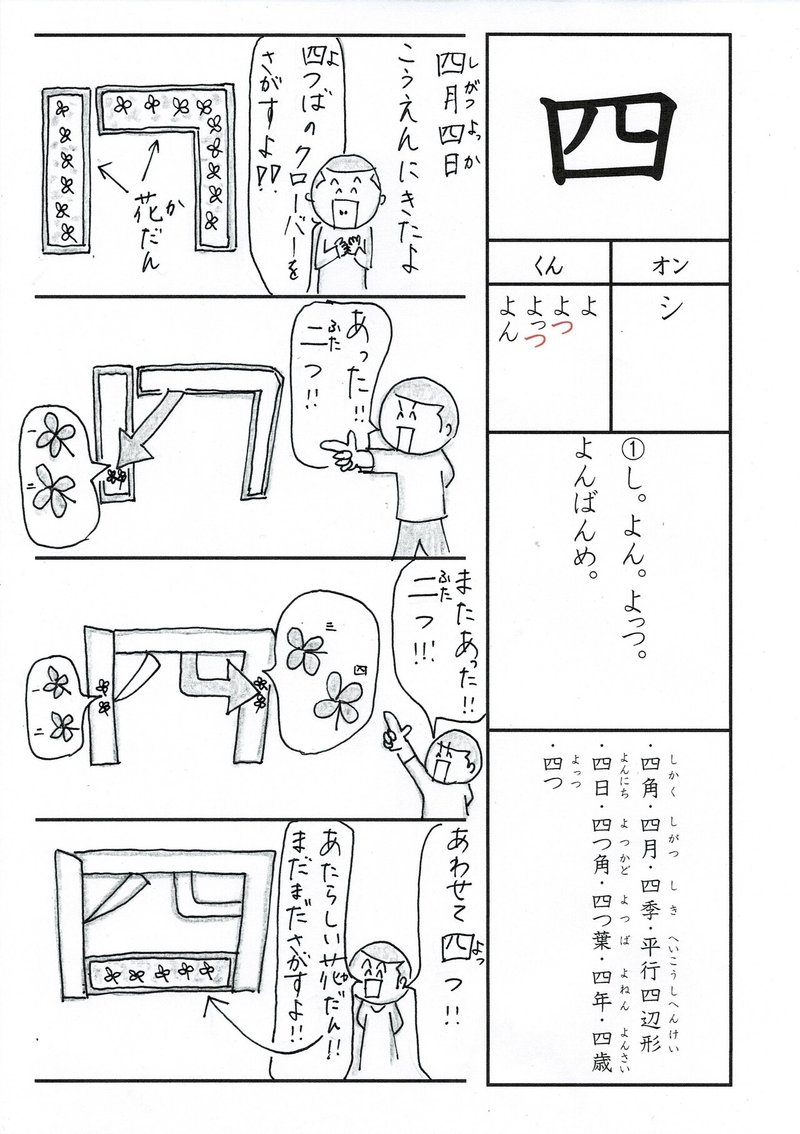 四
オン
くん
シ
よ
よつ
よっつ
よん
①し。よん。よっつ。
よんばんめ。
・四角・四月・四季・平行四辺形
しかく しがつ しき へいこうしへんけい
・四日・四つ角・四つ葉・四年・四歳
よんにち よつかど よつば よねん よんさい
・四つ
よっつ
四月四日
しがつ よっか
こうえんにきたよ
四つばのクローバーを
よ
さがすよ!!
花だん
か
あった!!
二つ!!
ふた
またあった!!
二つ!!
ふた
一
二
三
四
あわせて四つ!!
よっ
あたらしい花だん!!
か
まだまださがすよ!!